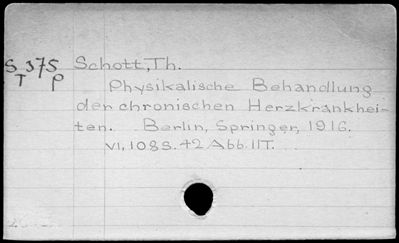 S 375 Schott, Th.
T P Physikalische Behandlung
der chronischen Herzkrankhei-
ten. Berlin, Springer, 1916.
VI, 108 S. 42 Abb. II T.